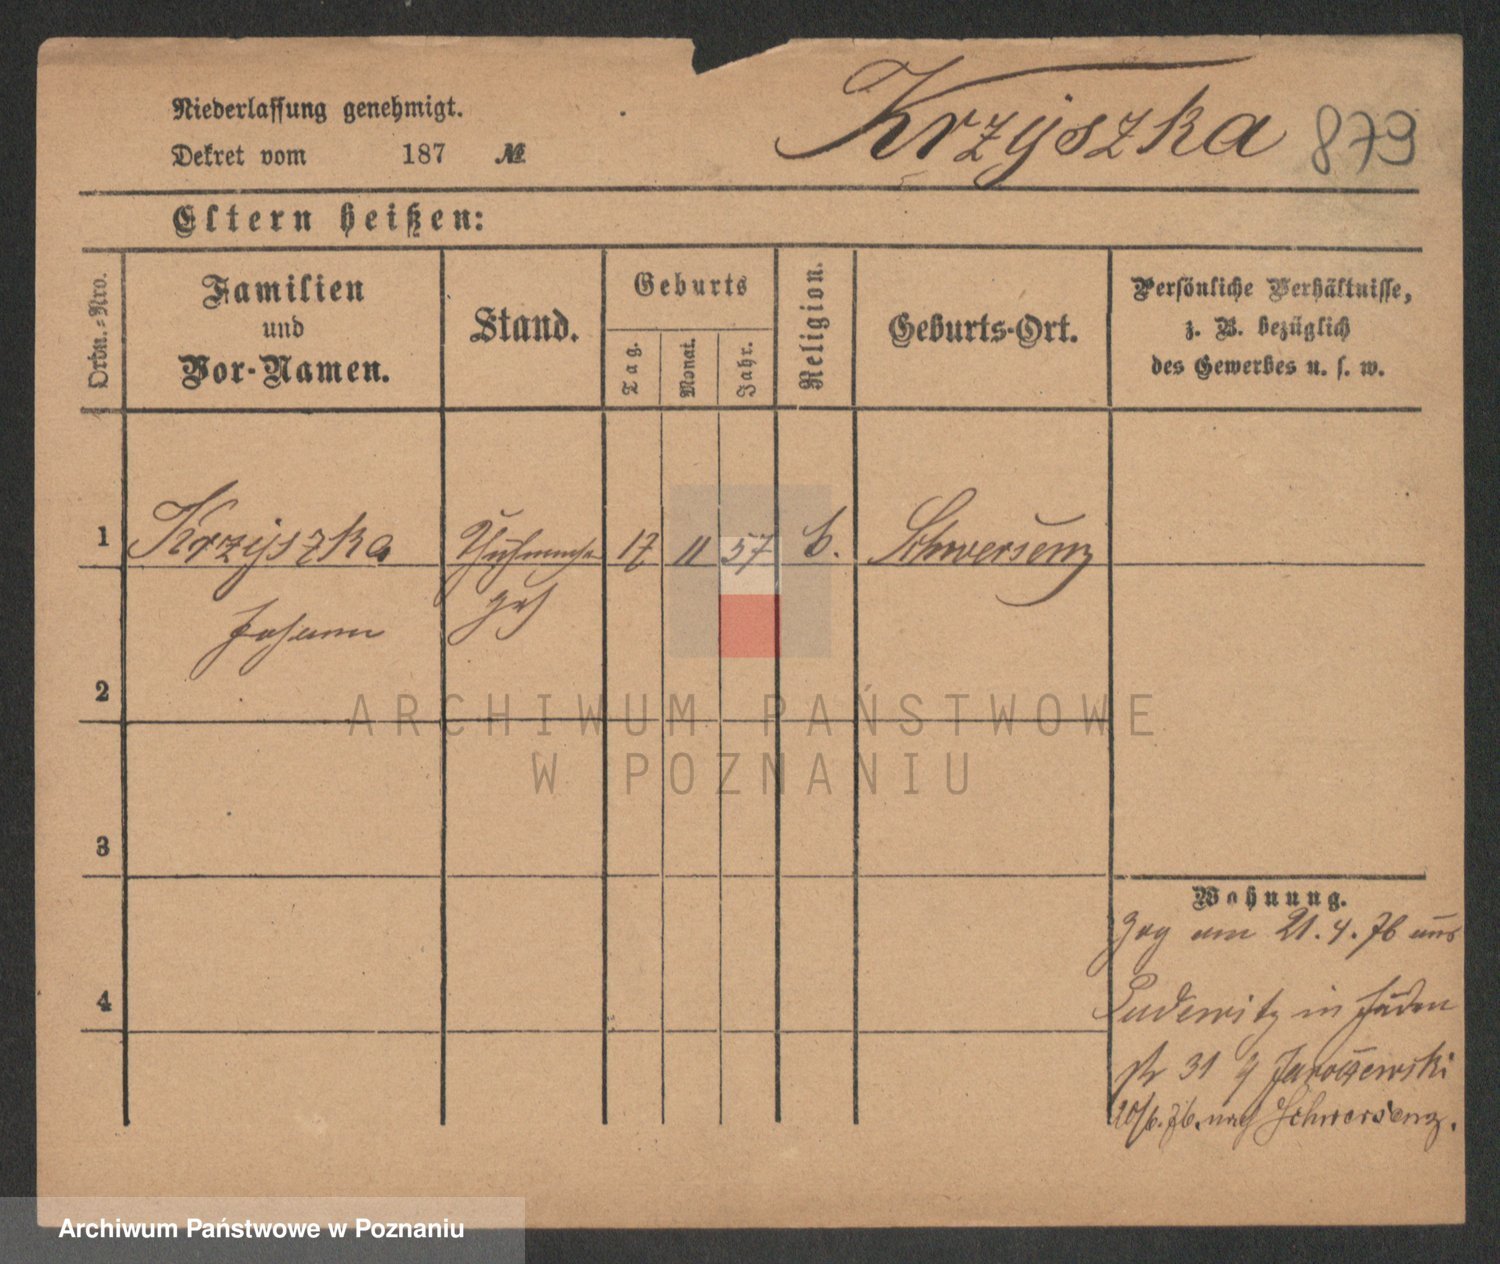 Niederlassung genehmigt.
Dekret vom 187 №
Krzyszka 879
Eltern heißen:
Ordn.=Nro.
Familien
und
Vor-Namen.
Stand.
Geburts
Tag.
Monat.
Jahr.
Religion.
Geburts-Ort.
Persönliche Verhältnisse,
z. B. bezüglich
des Gewerbes u. s. w.
1 Krzyszka 17 11 57 Schwersenz
Johann
2
ARCHIWUM PAŃSTWOWE
W POZNANIU
3
4
Wohnung.
Zog am 21.4.76 aus
Pudewitz in Juden
str 31 Jaroszewski
20/6.76. nach Schwersenz.
Archiwum Państwowe w Poznaniu